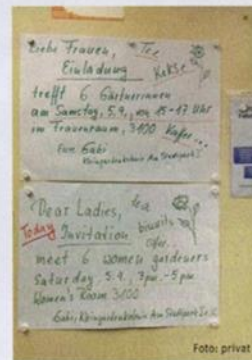 Liebe Frauen,
Tee
Einladung
Kekse
trifft 6 Gärtnerinnen
am Samstag, 5.9., 15-17 Uhr
im Frauenraum, 3100
Kafee...
Eure Gabi
Kleingartenkolonie Am Stadtpark I
Dear Ladies,
tea
Today Invitation
biscuits
meet 6 women gardeners
Saturday, 5.9., 3pm - 5pm
Women's Room 3100
Gabi, Kleingartenkolonie Am Stadtpark I
Foto: privat